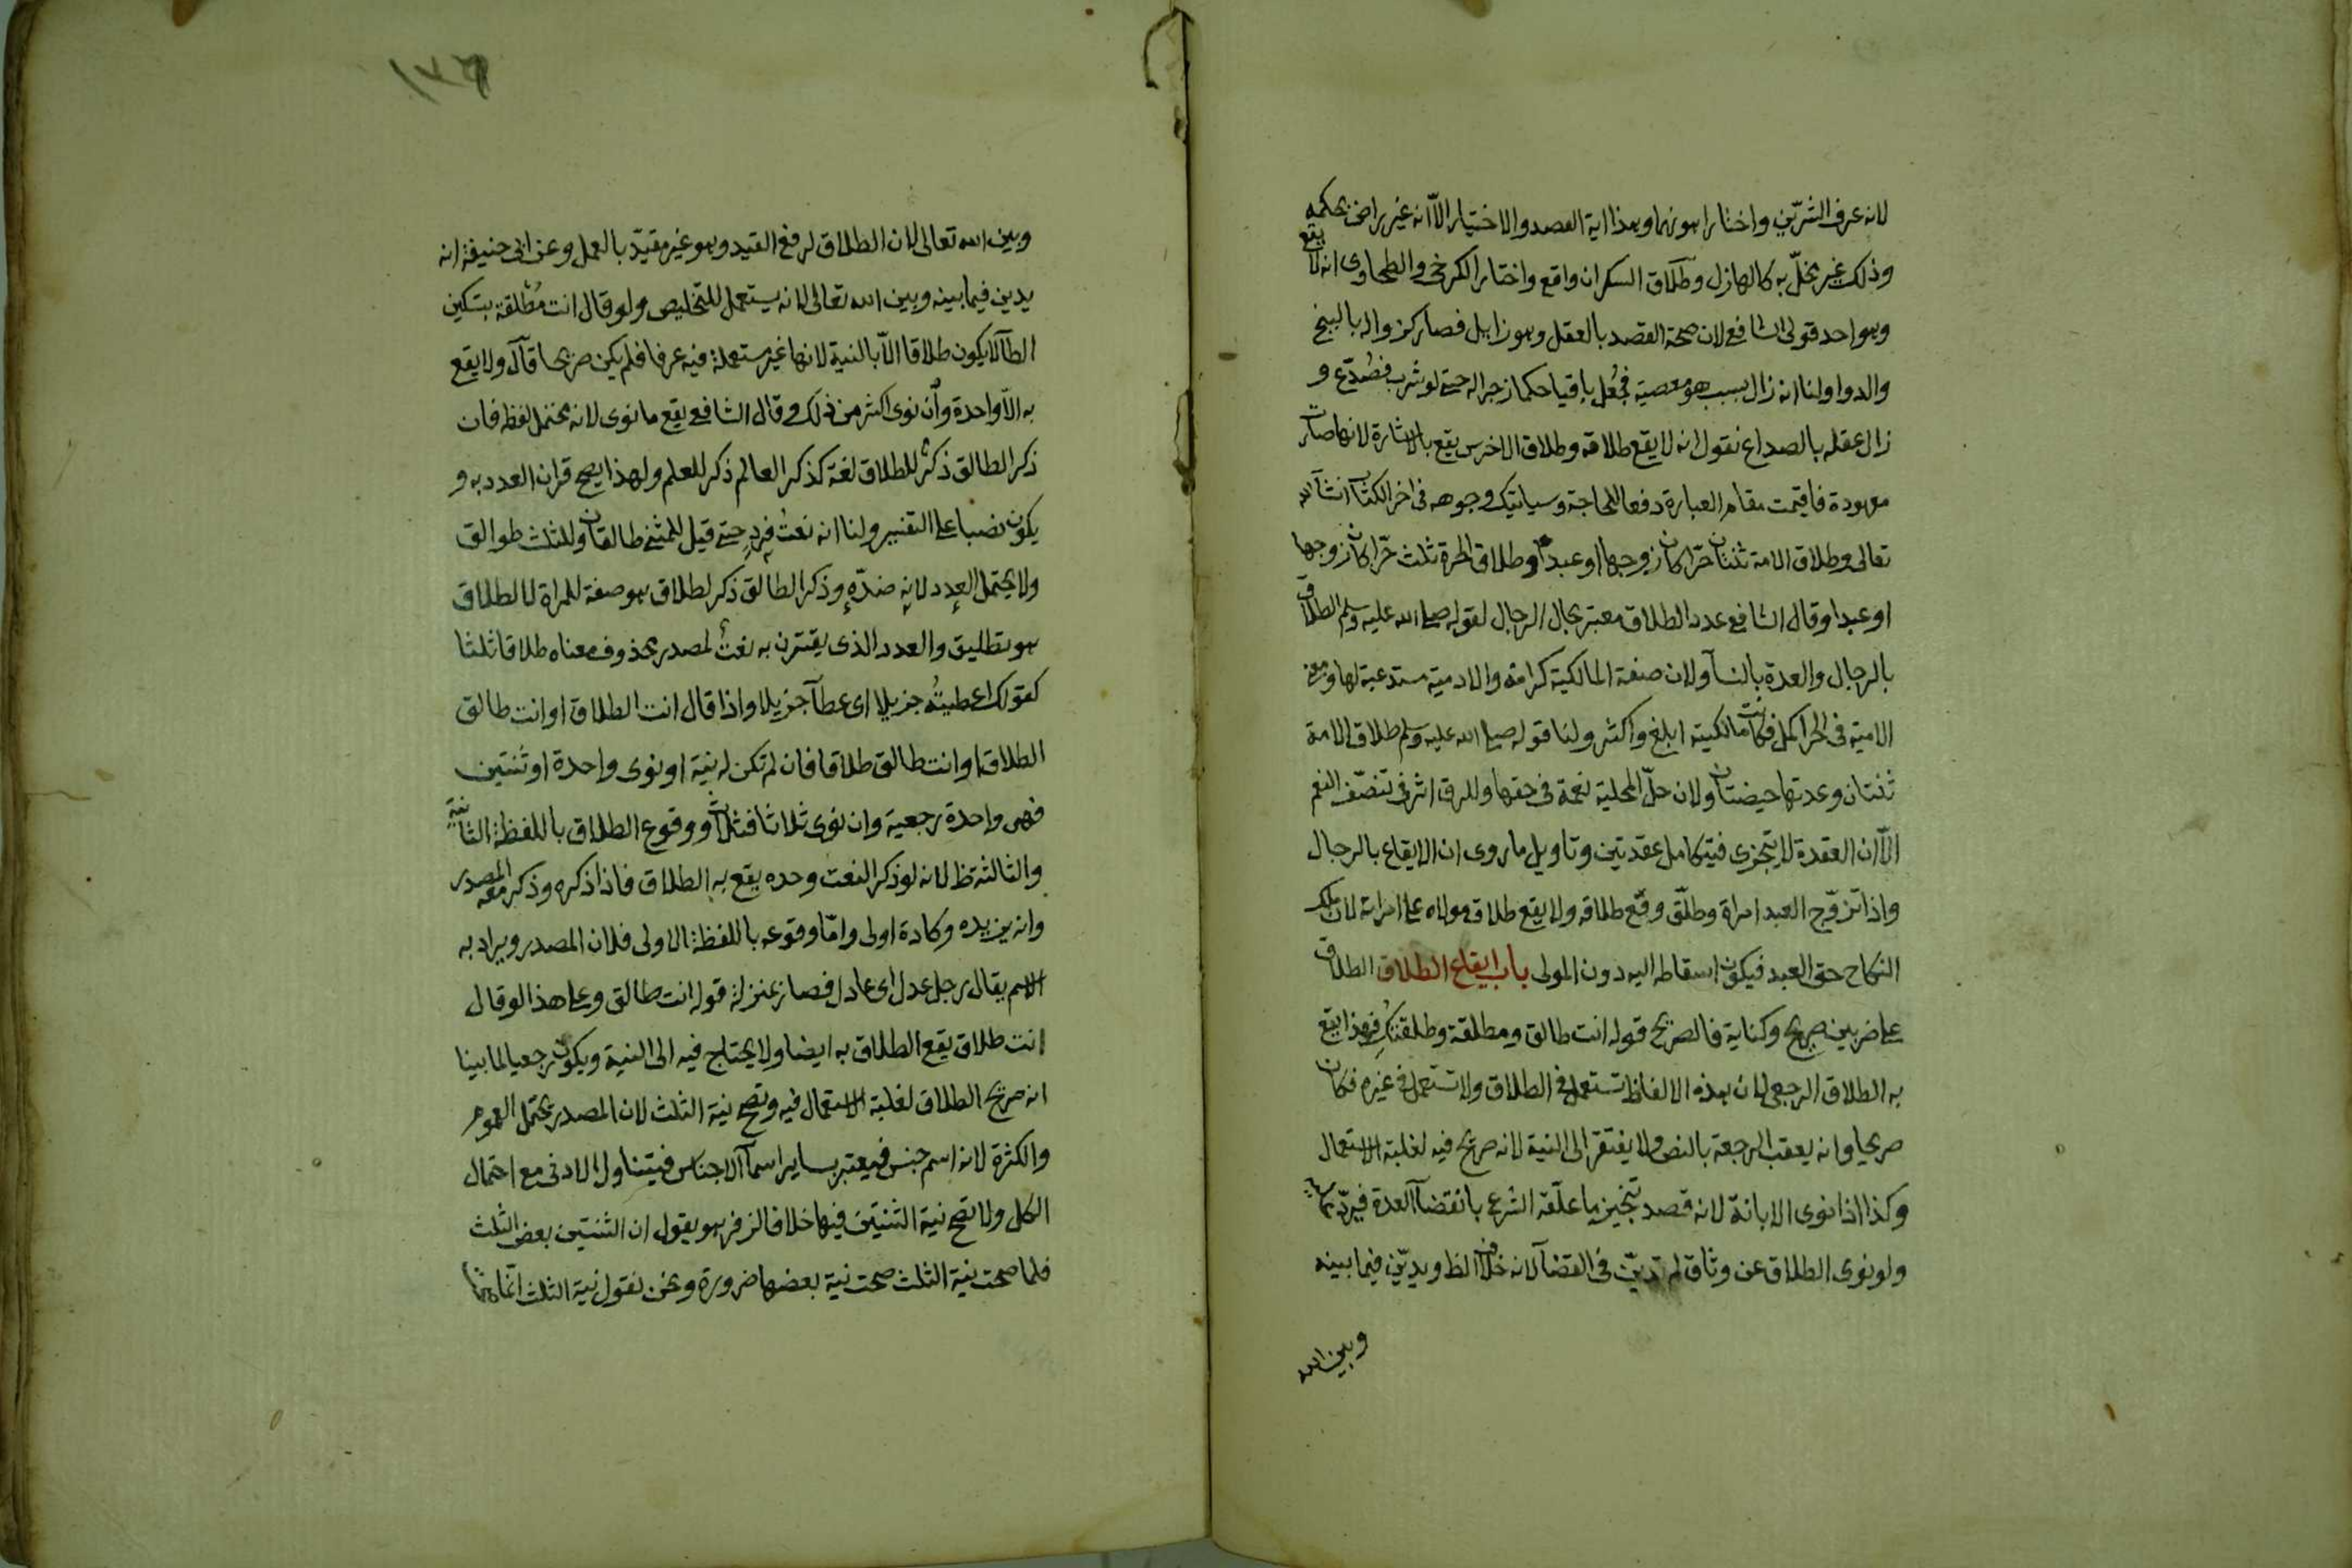 لانه عرف الشرين واختار اهونهما وهذا اية القصد والاختيار الا انه غير راض بحكمه
وذلك غير مخل به كالهازل وطلاق السكران واقع واختار الكرخي والطحاوي انه لا يقع
وهو احد قولي الشافعي لان صحة القصد بالعقل وهو زايل فصار كزواله بالبنج
والدواء ولنا انه زال بسبب هو معصية فجعل باقيا حكما زجرا له حتى لو شرب فصدع و
زال عقله بالصداع نقول انه لا يقع طلاقه وطلاق الاخرس يقع بالاشارة لانها صارت
معهودة فاقيمت مقام العبارة دفعا للحاجة وسياتيك وجوهه في اخر الكتاب ان شآ الله
تعالى وطلاق الامة ثنتان حرا كان زوجها او عبدا وطلاق الحرة ثلث حرا كان زوجها
او عبدا وقال الشافعي عدد الطلاق معتبر بحال الرجال لقوله صلى الله عليه وسلم الطلاق
بالرجال والعدة بالنسآ ولان صفة المالكية كرامة والادمية مستدعية لها ومعنى
الادمية في الحر اكمل فكانت مالكيته ابلغ واكثر ولنا قوله صلى الله عليه وسلم طلاق الامة
ثنتان وعدتها حيضتان ولان حل المحلية نعمة في حقها وللرق اثر في تنصف النعم
الا ان العقدة لا تتجزى فيتكامل عقدتين وتاويل ما روى ان الايقاع بالرجال
واذا تزوج العبد امراة وطلق وقع طلاقه ولا يقع طلاق مولاه على امراته لان ملك
النكاح حق العبد فيكون اسقاطه اليه دون المولى باب ايقاع الطلاق الطلاق
على ضربين صريح وكناية فالصريح قوله انت طالق ومطلقة وطلقتك فهذا يقع
به الطلاق الرجعي لان هذه الالفاظ تستعمل في الطلاق ولا تستعمل في غيره فكان
صريحا وانه يعقب الرجعة بالنص ولا يفتقر الى النية لانه صريح فيه لغلبة الاستعمال
وكذا اذا نوى الابانة لانه قصد تنجيز ما علقه الشرع بانقضآ العدة فيرد عليه
ولو نوى الطلاق عن وثاق لم يدين في القضآ لانه خلاف الظ ويدين فيما بينه
وبين الله
١٣٩
وبين الله تعالى لان الطلاق لرفع القيد وهو غير مقيد بالعمل وعن ابي حنيفة انه
يدين فيما بينه وبين الله تعالى لانه يستعمل للتخليص ولو قال انت مطلقة بتسكين
الطآ لا يكون طلاقا الا بالنية لانها غير مستعملة فيه عرفا فلم يكن صريحا قال ولا يقع
به الا واحدة وان نوى اكثر من ذلك وقال الشافعي يقع ما نوى لانه محتمل لفظه فان
ذكر الطالق ذكر للطلاق لغة كذكر العالم ذكر للعلم ولهذا يصح قران العدد به و
يكون نصبا على التفسير ولنا انه نعت فرد حتى قيل للمثنى طالقان وللثلث طوالق
ولا يحتمل العدد لانه ضده وذكر الطالق ذكر لطلاق هو صفة للمراة لا لطلاق
هو تطليق والعدد الذي يقترن به نعت لمصدر محذوف معناه طلاقا ثلثا
كقولك اعطيته جزيلا اى عطآ جزيلا واذا قال انت الطلاق او انت طالق
الطلاق او انت طالق طلاقا فان لم تكن له نية او نوى واحدة او ثنتين
فهى واحدة رجعية وان نوى ثلاثا فثلاث ووقوع الطلاق باللفظة الثانية
والثالثة ظ لانه لو ذكر النعت وحده يقع به الطلاق فاذا ذكره وذكر معه المصدر
وانه يزيده وكادة اولى واما وقوعه باللفظة الاولى فلان المصدر ويراد به
الاسم يقال رجل عدل اى عادل فصار بمنزلة قوله انت طالق وعلى هذا لو قال
انت طلاق يقع الطلاق به ايضا ولا يحتاج فيه الى النية ويكون رجعيا لما بينا
انه صريح الطلاق لغلبة الاستعمال فيه وتصح نية الثلث لان المصدر يحتمل العموم
والكثرة لانه اسم جنس فيعتبر بساير اسمآ الاجناس فيتناول الادنى مع احتمال
الكل ولا تصح نية الثنتين فيها خلافا لزفر هو يقول ان الثنتين بعض الثلث
فلما صحت نية الثلث صحت نية بعضها ضرورة ونحن نقول نية الثلث انما